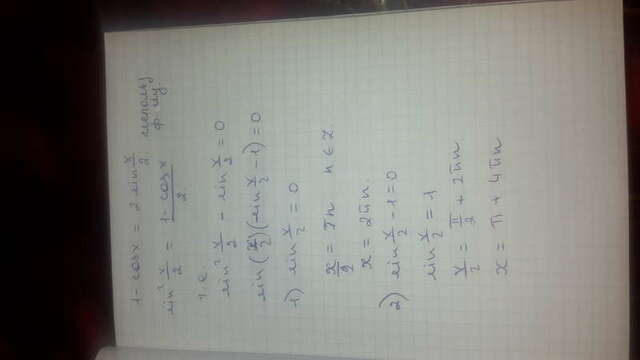 1 - cos x = 2 sin x/2 использ
ф-лу
sin² x/2 = (1 - cos x)/2
т.е.
sin² x/2 - sin x/2 = 0
sin(x/2)(sin x/2 - 1) = 0
1) sin x/2 = 0
x/2 = πn n ∈ Z.
x = 2πn.
2) sin x/2 - 1 = 0
sin x/2 = 1
x/2 = π/2 + 2πn
x = π + 4πn